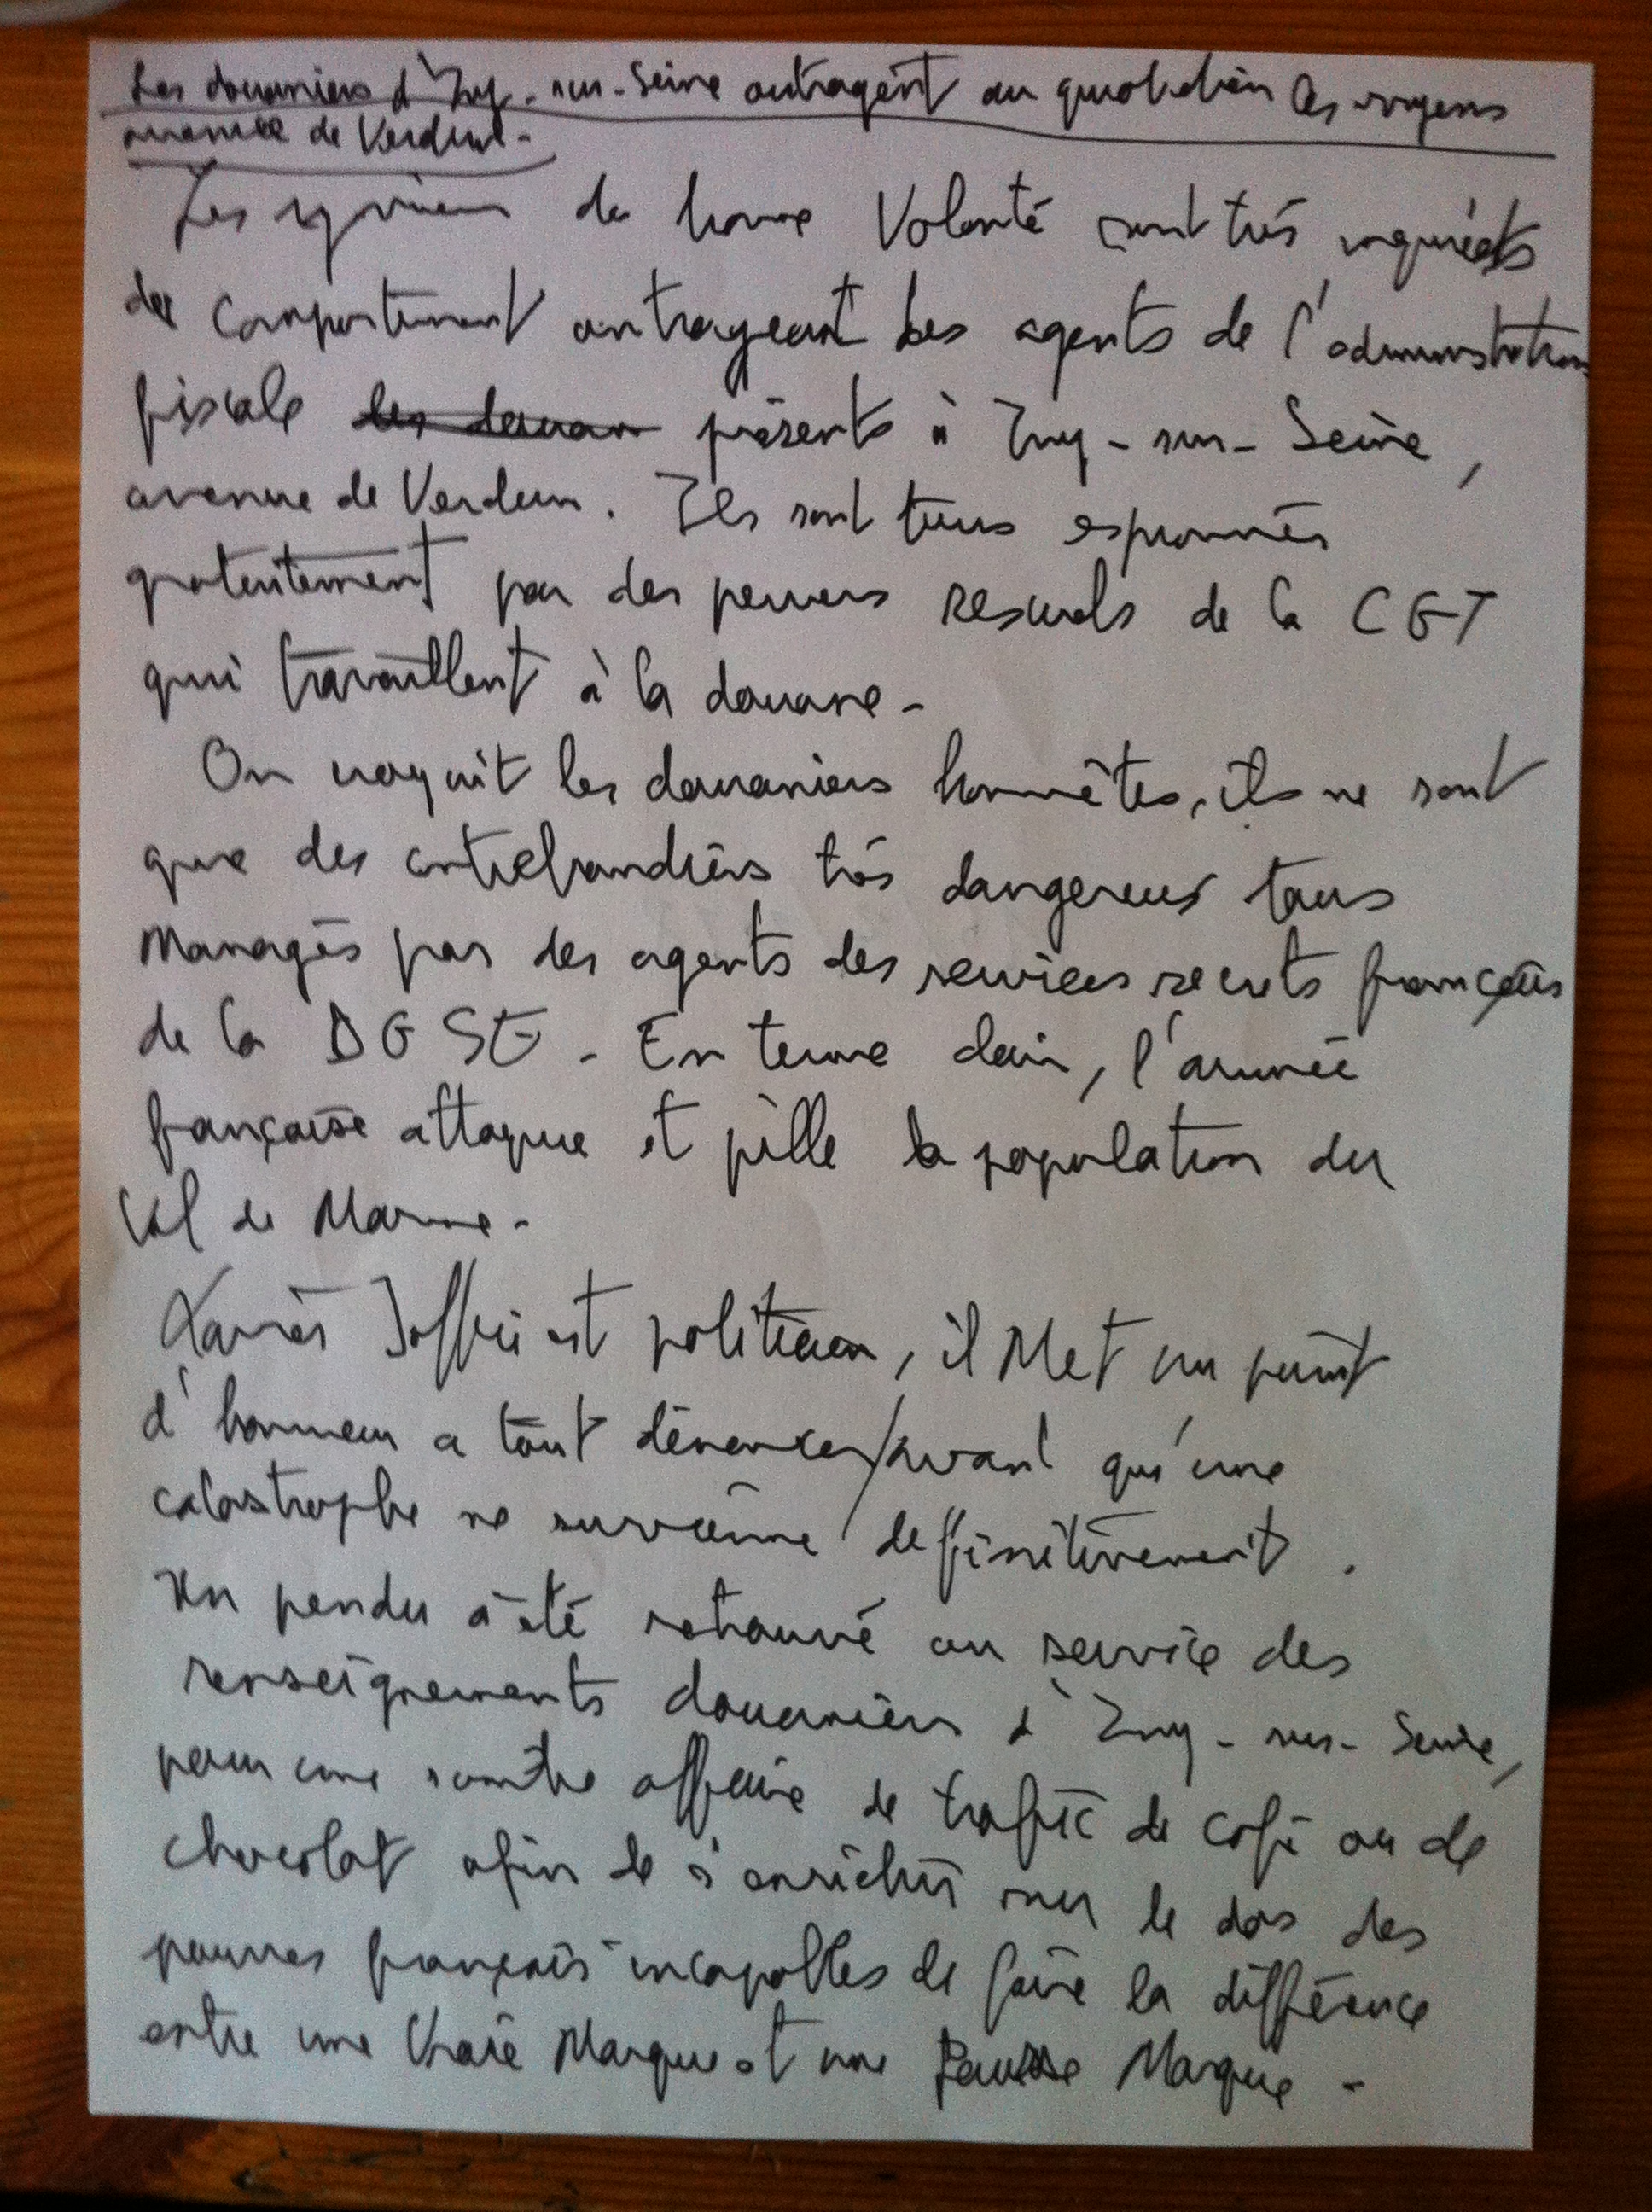 Les douaniers d'Ivry-sur-Seine outragent au quotidien les
avenue de Verdun-
Les de bonne Volonté sont très inquiets
du comportement outrageant des agents de l'administration
fiscale les douan présents à Ivry-sur-Seine,
avenue de Verdun. Ils sont tous espionnés
gratuitement par des pervers sexuels de la CGT
qui travaillent à la douane-
On croyait les douaniers honnêtes, ils ne sont
que des contrebandiers très dangereux tous
Managés par des agents des services secrets français
de la DGSE- En terme clair, l'armée
française attaque et pille la population du
Val de Marne-
Xavier Joffre est politicien, il Met un point
d'honneur a tout dénoncer avant qu'une
catastrophe ne survienne deffinitivement.
Un pendu a été retrouvé au service des
renseignements douaniers d'Ivry-sur-Seine,
pour une sombre affaire de trafic de café ou de
chocolat afin de s'enrichir sur le dos des
pauvres français incapables de faire la différence
entre une Vraie Marque et une Fausse Marque-